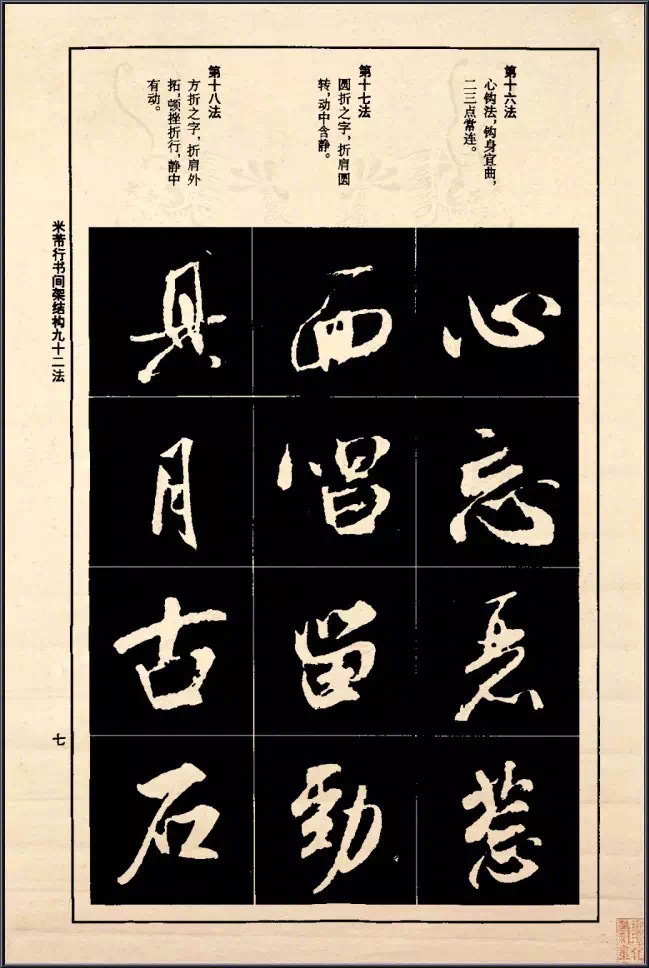 第十六法
心钩法，钩身宜曲，
二三点常连。
心
忘
惹
第十七法
圆折之字，折肩圆
转，动中含静。
唱
留
勁
第十八法
方折之字，折肩外
拓，顿挫折行，静中
有动。
具
月
古
石
米芾行书间架结构九十二法
七